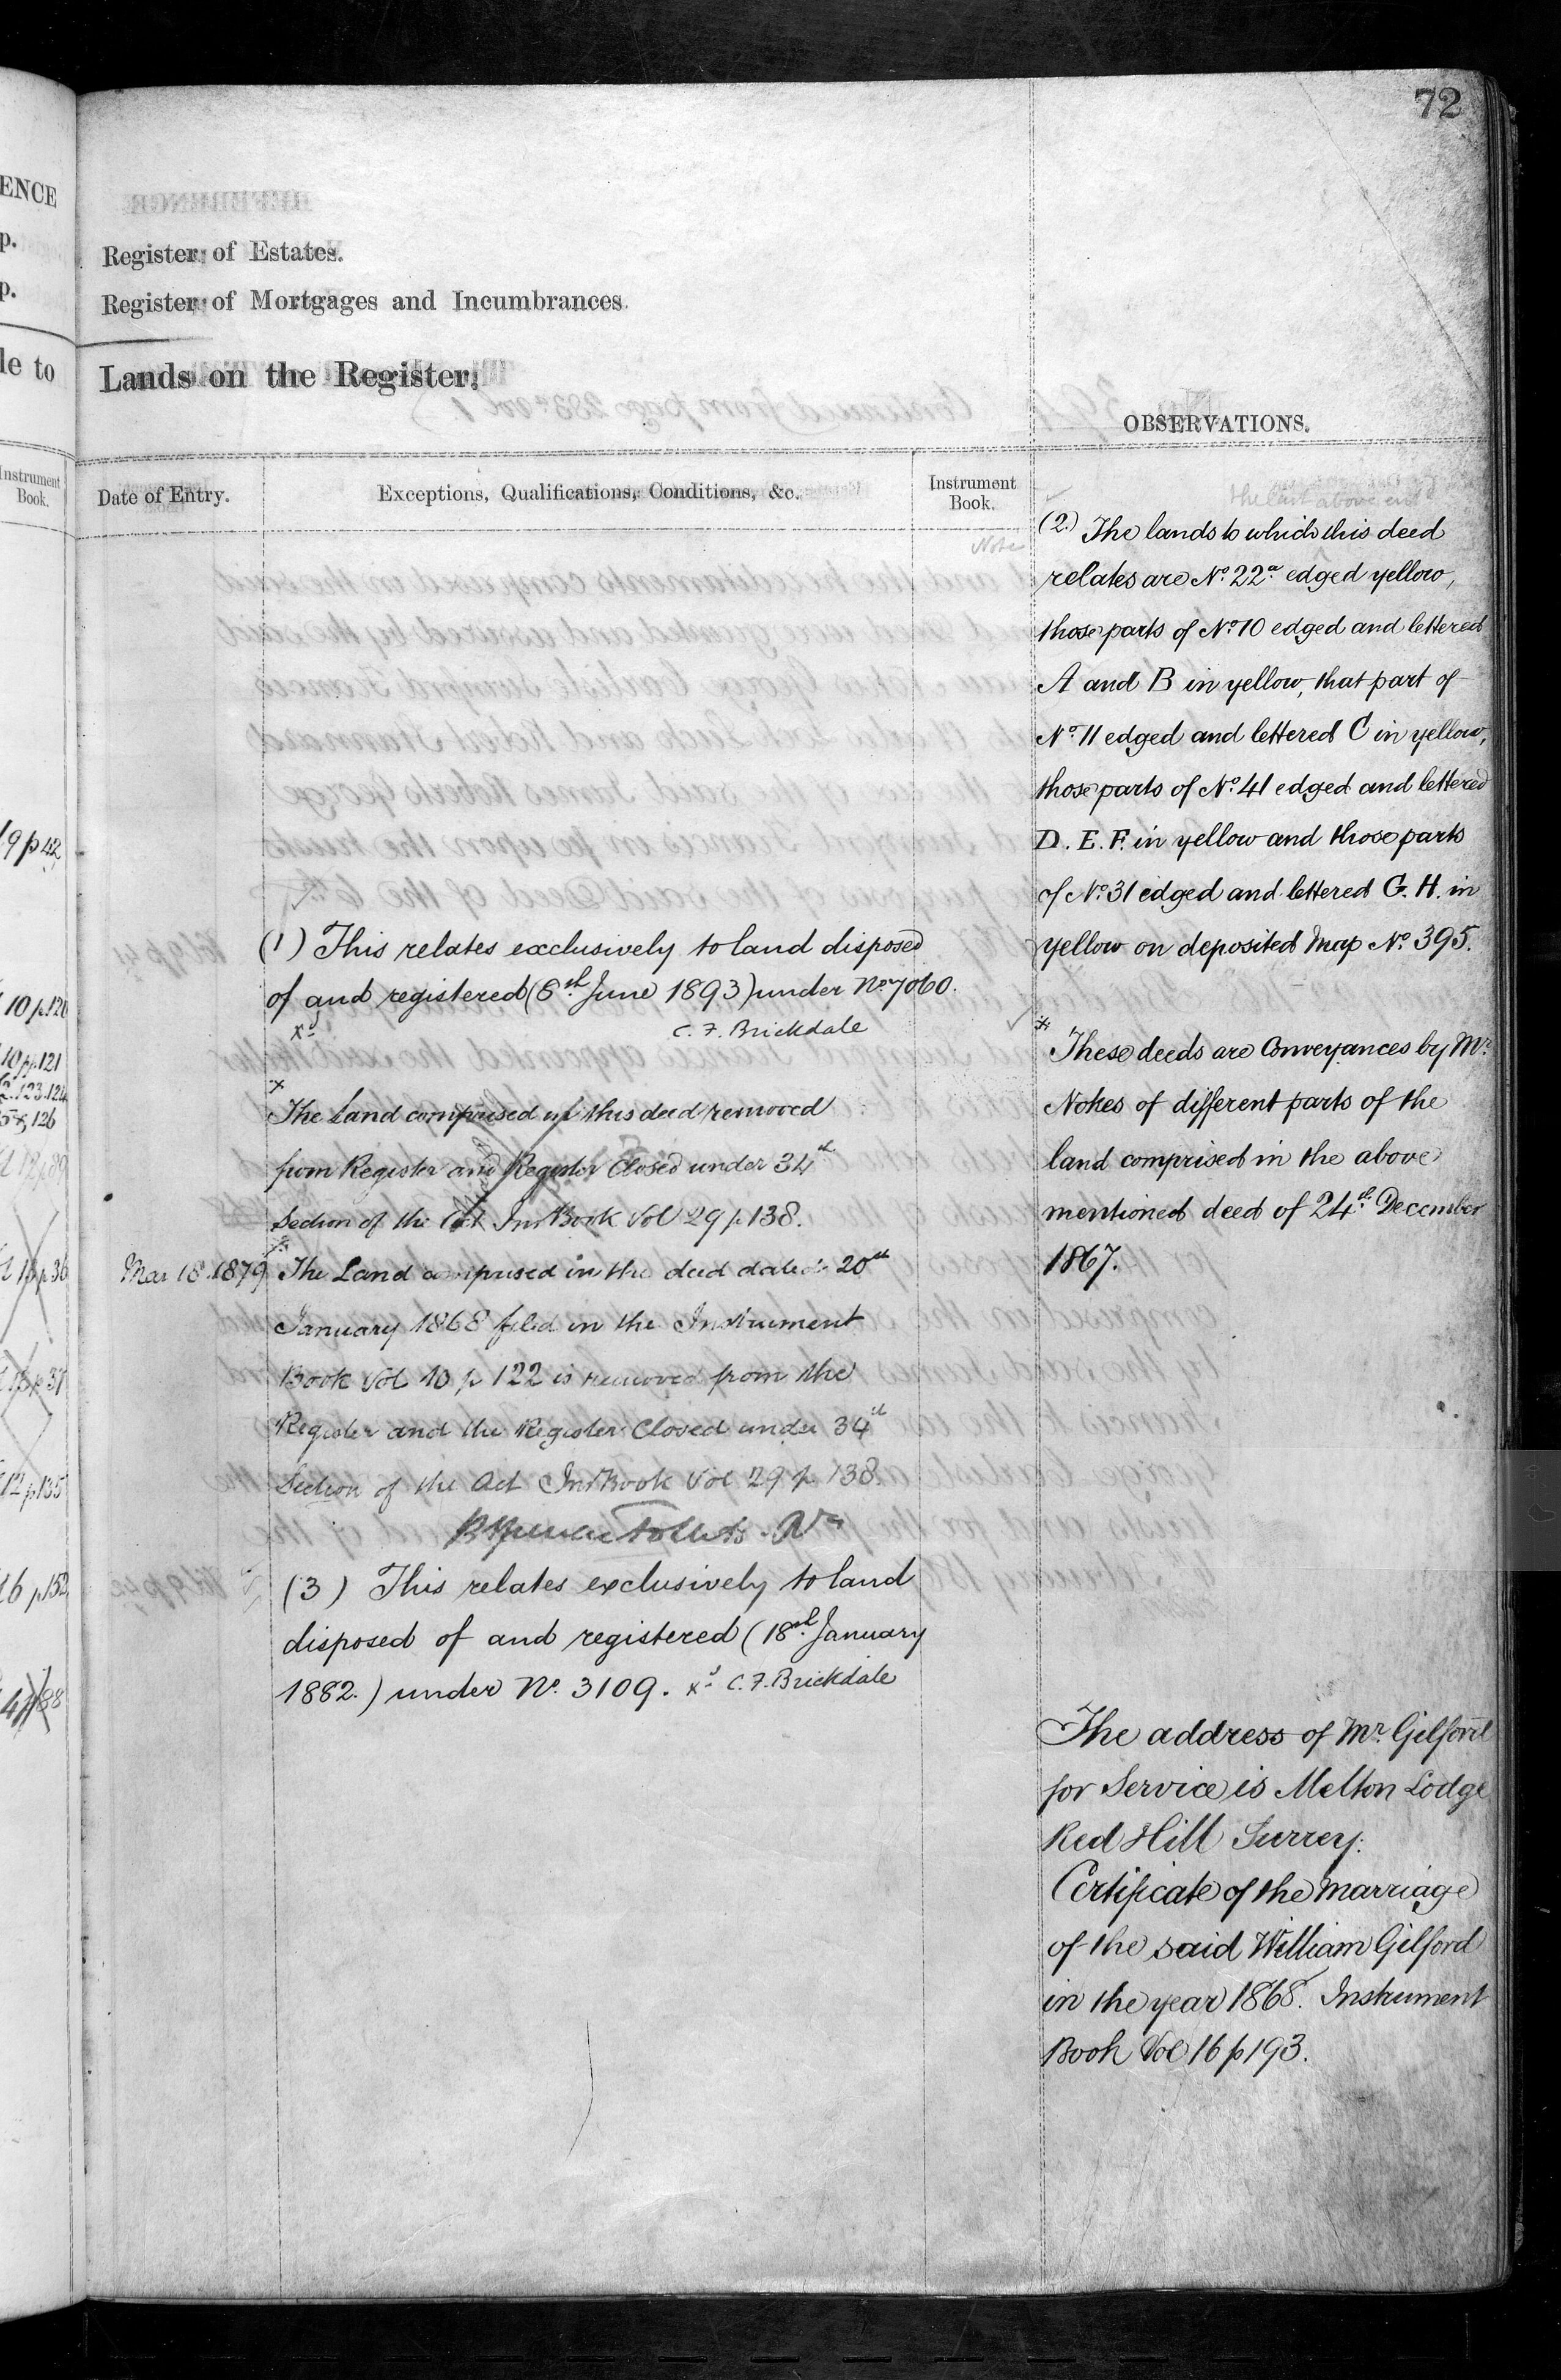 72
ENCE
p.
p.
le to
Instrument
Book.
9 p 42
10 p. 120
10 pp. 121
123. 124
126
16 p 152
Register of Estates.
Register of Mortgages and Incumbrances.
Lands on the Register.
Date of Entry.
Exceptions, Qualifications, Conditions, &c.
Instrument
Book.
Note
(1) This relates exclusively to land disposed
of and registered (6th June 1893) under No. 7060.
xd C. F. Brickdale
x
The Land comprised in this deed removed
from Register and Register Closed under 34th
Section of the Act Ins Book Vol 29 p 138.
Mar 18 1879
The Land comprised in the deed dated 20th
January 1868 filed in the Instrument
Book Vol 10 p 122 is removed from the
Register and the Register Closed under 34th
Section of the Act Ins Book Vol 29 p 138.
(3) This relates exclusively to land
disposed of and registered (18th January
1882.) under No. 3109. xd C. F. Brickdale
OBSERVATIONS.
the last above
(2.) The lands to which this deed
relates are No. 22a edged yellow,
those parts of No. 10 edged and lettered
A and B in yellow, that part of
No. 11 edged and lettered C in yellow,
those parts of No. 41 edged and lettered
D. E. F. in yellow and those parts
of No. 31 edged and lettered G. H. in
yellow on deposited Map No. 395.
* These deeds are Conveyances by Mr.
Nokes of different parts of the
land comprised in the above
mentioned deed of 24th December
1867.
The address of Mr. Gilford
for Service is Melton Lodge
Red Hill Surrey.
Certificate of the Marriage
of the said William Gilford
in the year 1868. Instrument
Book Vol 16 p 193.